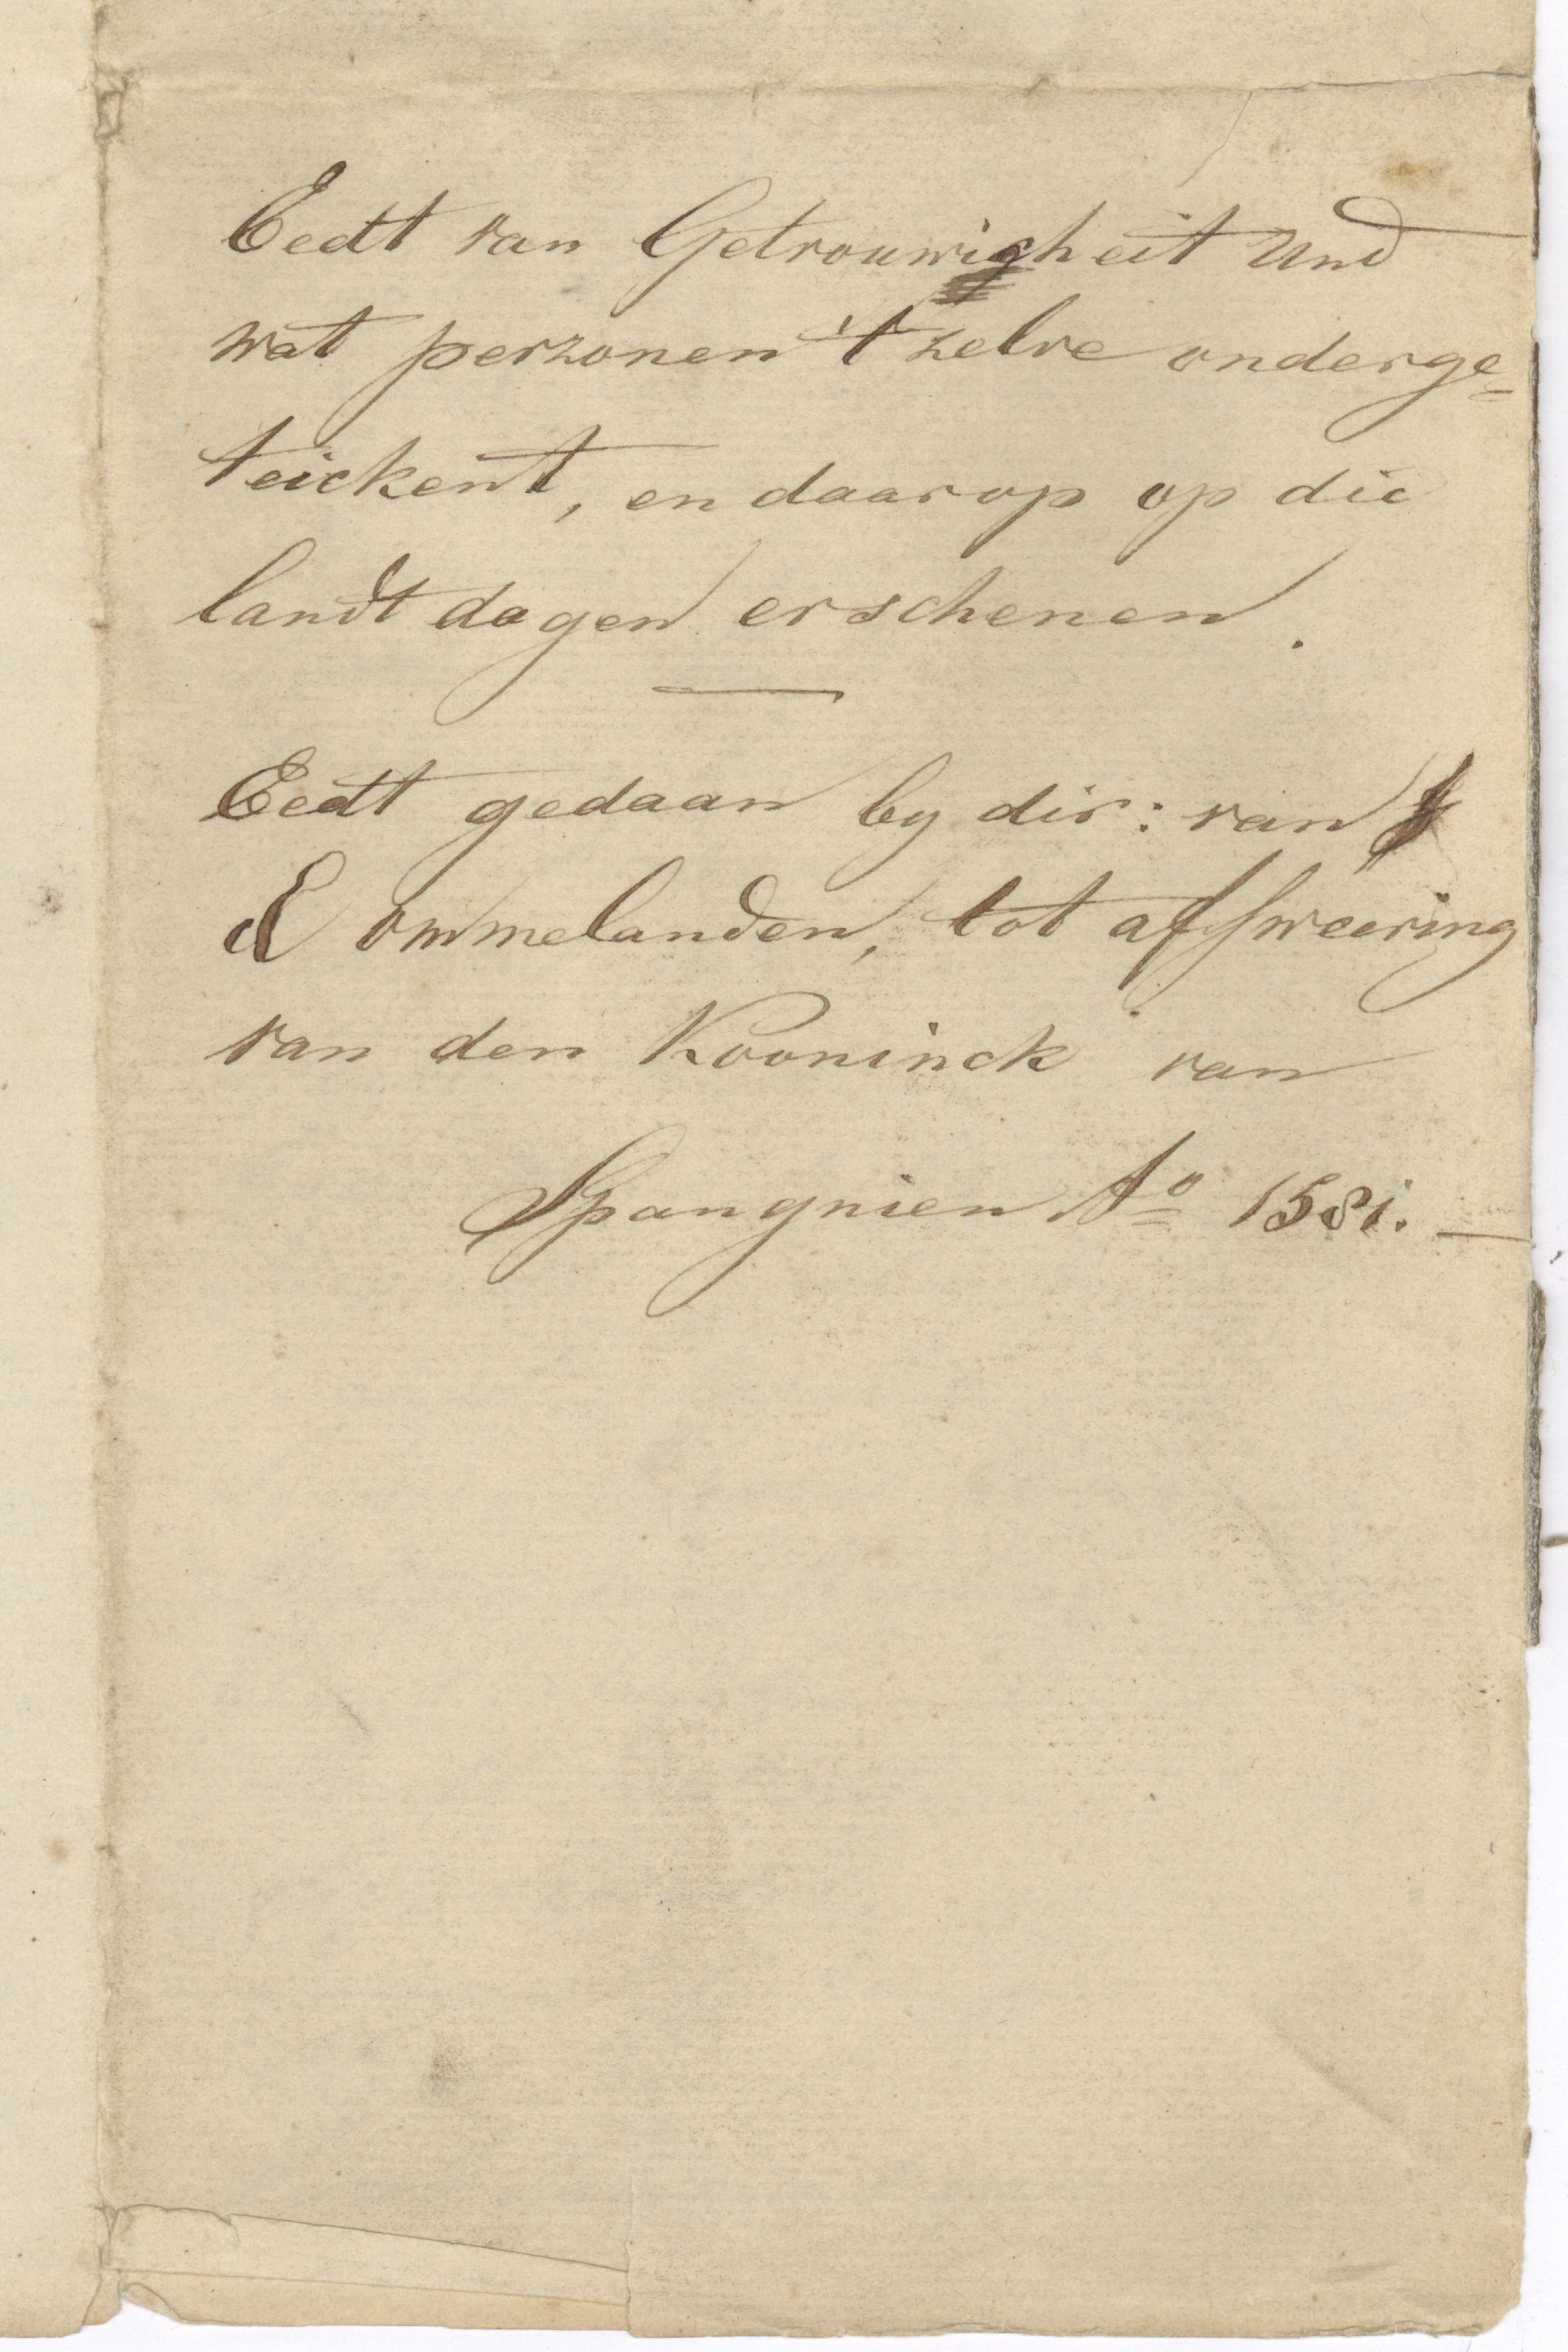 Eedt van Getrouwigheit und
wat perzonen 't zelve onderge=
teickent, en daar op op die
landt dagen erschenen.
Eedt gedaan by dir: van
E ommelanden, tot affsweering
van den Kooninck van
Spangnien Ao 1581.